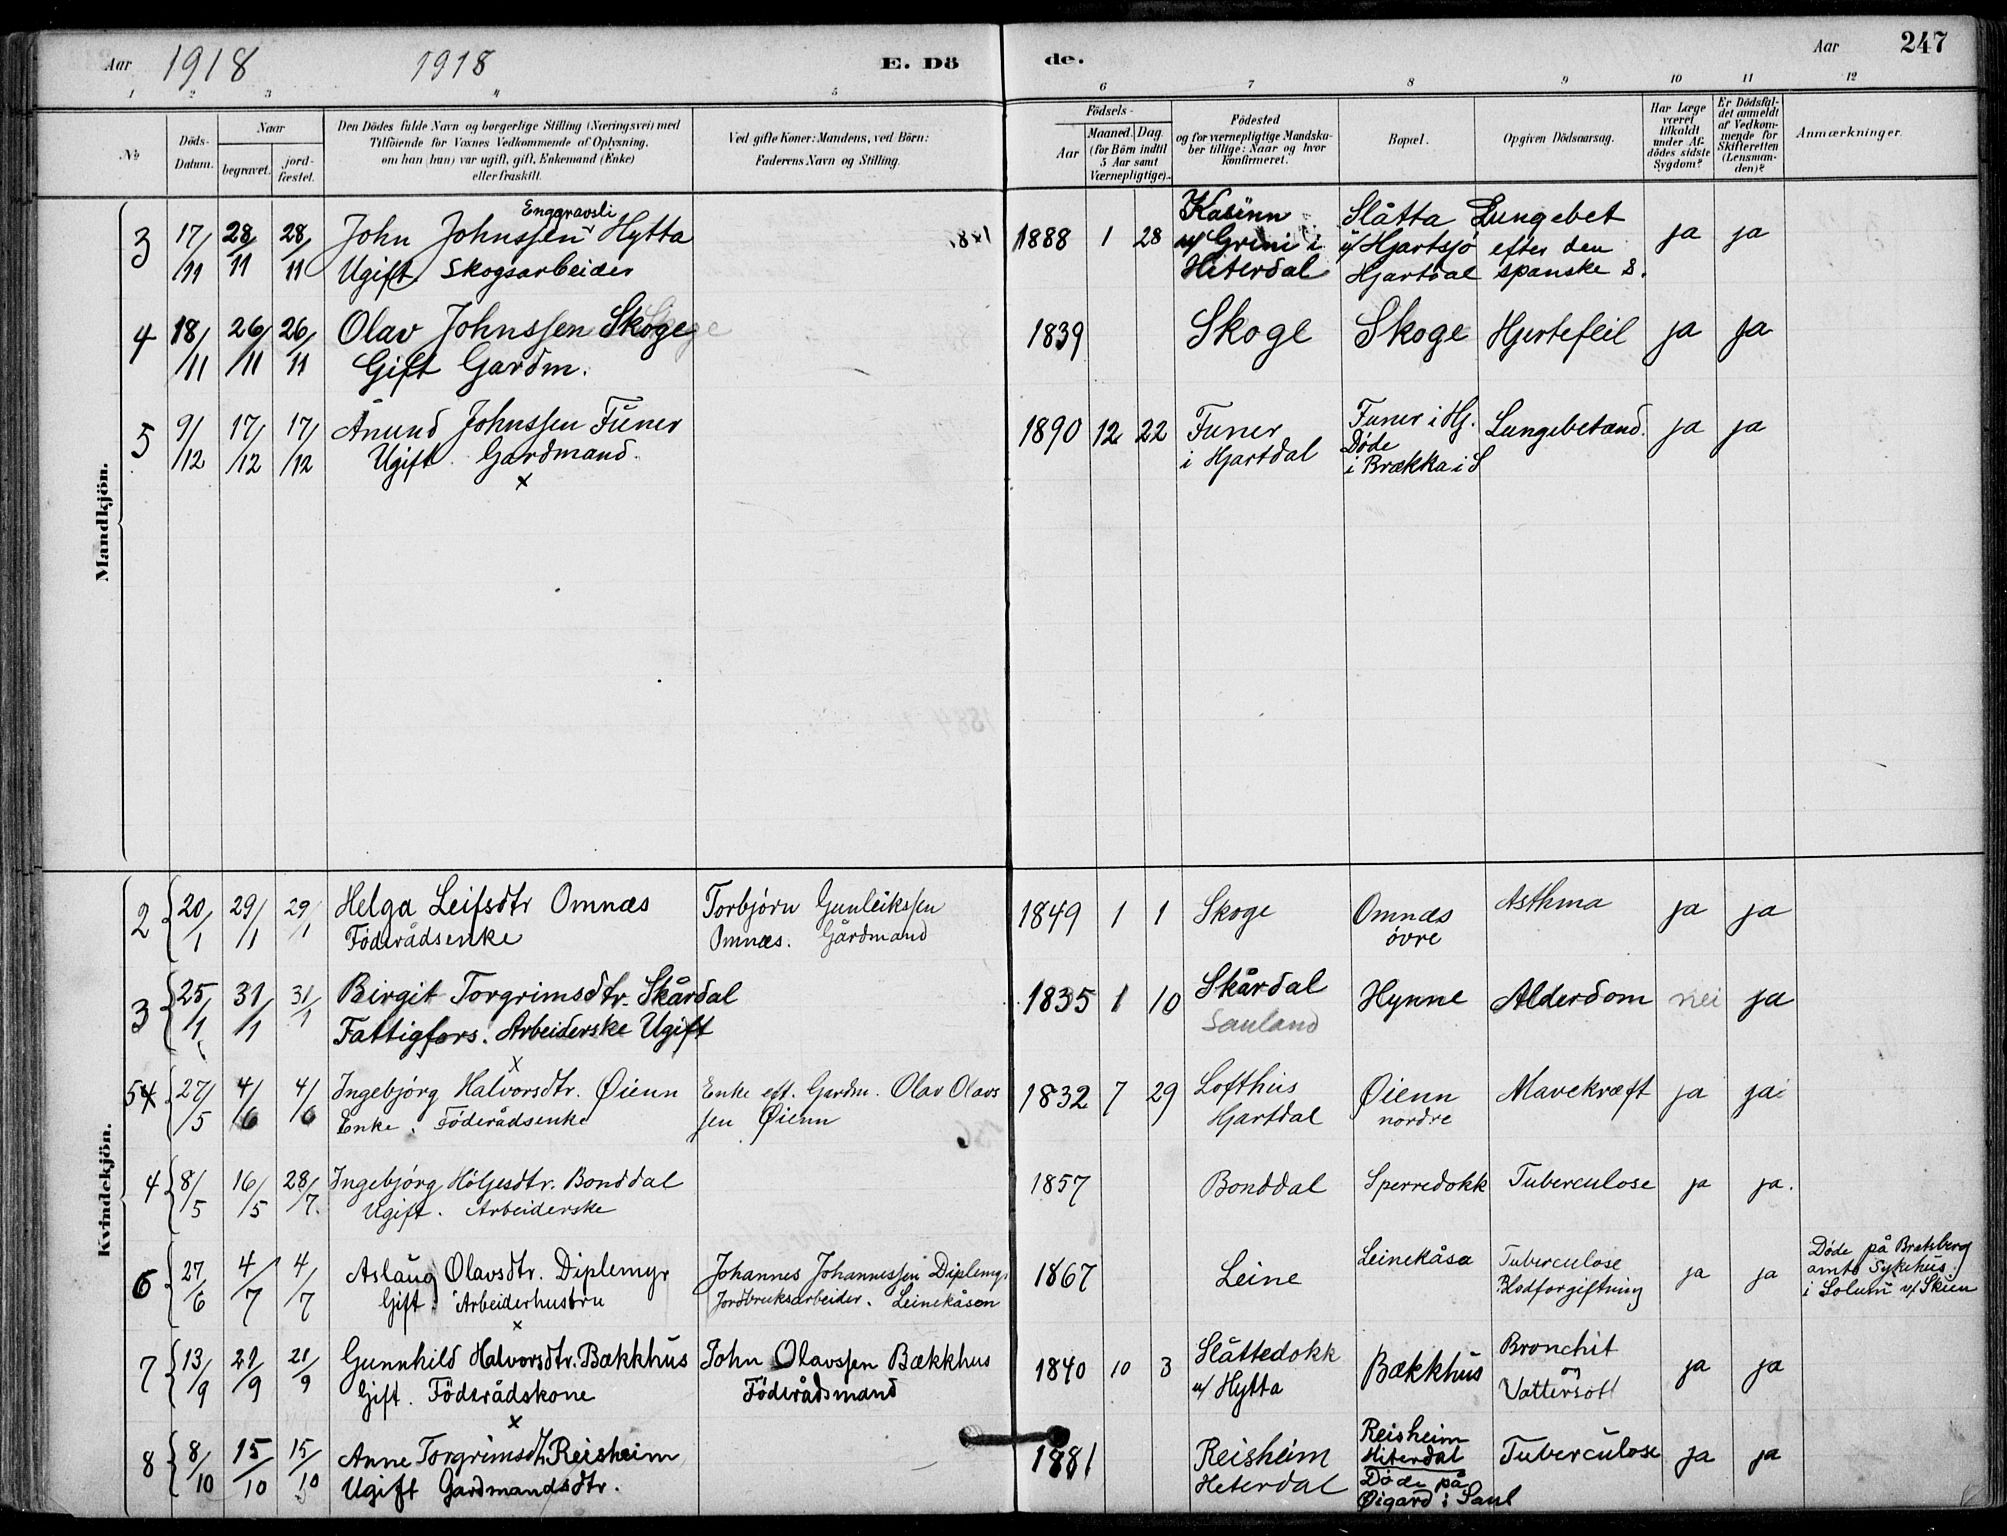 Aar 1918 1918 E. Dö de. Aar 247
1 2 3 4 5 6 7 8 9 10 11 12
No
Döds-
Datum.
Naar
begravet.
jord-
fæstet.
Den Dödes fulde Navn og borgerlige Stilling (Næringsvei) med
Tilföiende for Voxnes Vedkommende af Oplysning,
om han (hun) var ugift, gift, Enkemand (Enke)
eller fraskilt.
Ved gifte Koner: Mandens, ved Börn:
Faderens Navn og Stilling.
Födsels-
Aar
Maaned. Dag.
(for Börn indtil
5 Aar samt
Værnepligtige).
Födested
og for værnepligtige Mandska-
ber tillige: Naar og hvor
konfirmeret.
Bopæl.
Opgiven Dödsaarsag.
Har Læge
været
tilkaldt
under Af-
dödes sidste
Sygdom?
Er Dödsfal-
det anmeldt
af Vedkom-
mende for
Skifteretten
(Lensman-
den)?
Anmærkninger.
Mandkjön.
3 17/11 28/11 28/11
Enggravsli
John Johnssen Hytta
Ugift Skogsarbeider
1888 1 28
Kasinn
u/ Grini i
Hiterdal
Slåtta
u/ Hjartsjö
Hjartdal
Lungebet
efter den
spanske S.
ja ja
4 18/11 26/11 26/11
Olav Johnssen Skoge
Gift Gardm.
1839 Skoge Skoge Hjertefeil ja ja
5 9/12 17/12 17/12
Anund Johnssen Funer
Ugift. Gardmand.
x
1890 12 22
Funer
i Hjartdal
Funer i Hj.
Døde
i Brækka i S
Lungebetænd. ja ja
Kvindekjön.
2 20/1 29/1 29/1
Helga Leifsdtr Omnæs
Föderådsenke
Torbjörn Gunleikssen
Omnæs. Gårdmand
1849 1 1 Skoge
Omnæs
övre
Asthma ja ja
3 25/1 31/1 31/1
Birgit Torgrimsdtr. Skårdal
Fattigfors. Arbeiderske Ugift
x
1835 1 10
Skårdal
Sauland
Hynne Alderdom nei ja
54 27/5 4/6 4/6
Ingebjörg Halvorsdtr. Øienn
Enke. Föderådsenke
Enke eft. Gardm. Olav Olavs
sen Øienn
1832 7 29
Lofthus
Hjartdal
Øienn
nordre
Mavekræft ja ja
4 8/5 16/5 28/7
Ingebjörg Höljesdtr. Bonddal
Ugift. Arbeiderske
1857 Bonddal Sperredokk Tuberculose ja ja.
6 27/6 4/7 4/7
Aslaug Olavsdtr. Diplemyr
Gift. Arbeiderhustru
x
Johannes Johannessen Diplemyr
Jordbruksarbeider. Leinekåsen
1867 Leine Leinekåsa
Tuberculose
Blodforgiftning
ja ja
Døde på Bratsberg
amts Sykehus
i Solum v/ Skien
7 13/9 21/9 21/9
Gunnhild Halvorsdtr. Bækkhus
Gift. Föderådskone
x
John Olavssen Bækkhus
Föderådsmand
1840 10 3
Slåttedokk
u/ Hytta
Bækkhus
Bronchit
og
Vattersott
ja ja
8 8/10 15/10 15/10
Anne Torgrimsdtr Reisheim
Ugift Gardmandsdtr.
1881
Reisheim
Heterdal
Reisheim
Hiterdal
Døde på
Øigard i Saul
Tuberculose ja ja